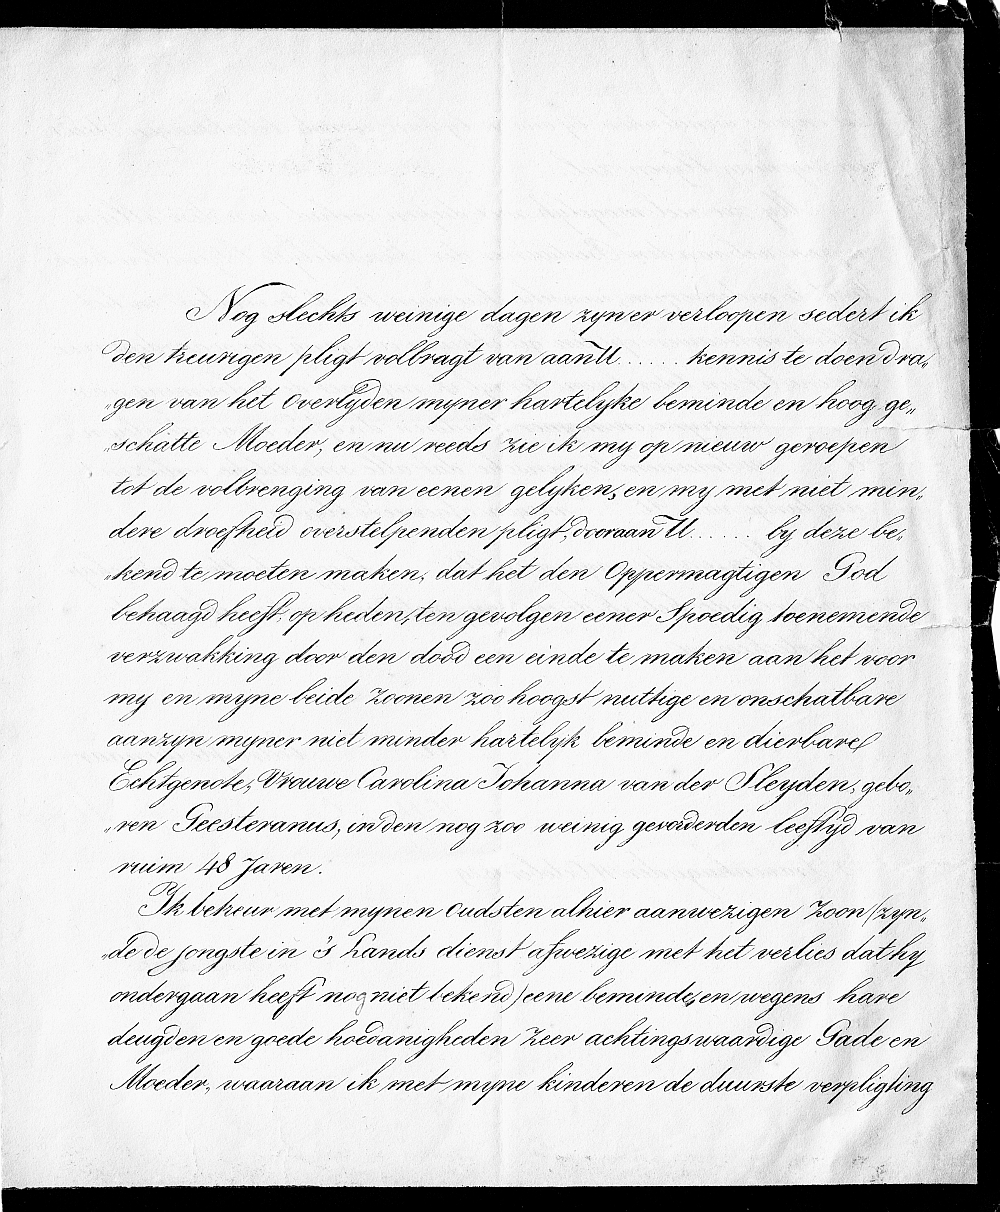 Nog slechts weinige dagen zyn er verloopen sedert ik
den treurigen pligt volbragt van aan U ...... kennis te doen dra„
„gen van het overlyden myner hartelyke beminde en hoog ge„
„schatte Moeder, en nu reeds zie ik my op nieuw geroepen
tot de volbrenging van eenen gelyken, en my met niet min„
dere droefheid overstelpenden pligt, door aan U ...... by deze be„
„kend te moeten maken, dat het den Oppermagtigen God
behaagd heeft, op heden, ten gevolgen eener Spoedig toenemende
verzwakking door den dood een einde te maken aan het voor
my en myne beide Zoonen zoo hoogst nuttige en onschatbare
aanzyn myner niet minder hartelyk beminde en dierbare
Echtgenote, Vrouwe Carolina Johanna van der Sleyden, gebo„
„ren Geesteranus, in den nog zoo weinig gevorderden leeftyd van
ruim 48 Jaren.
Ik betreur met mynen oudsten alhier aanwezigen Zoon (zyn„
„de de jongste in 's Lands dienst afwezige met het verlies dat hy
ondergaan heeft nog niet bekend) eene beminde, en wegens hare
deugden en goede hoedanigheden Zeer achtingswaardige Gade en
Moeder, waaraan ik met myne kinderen de duurste verpligting